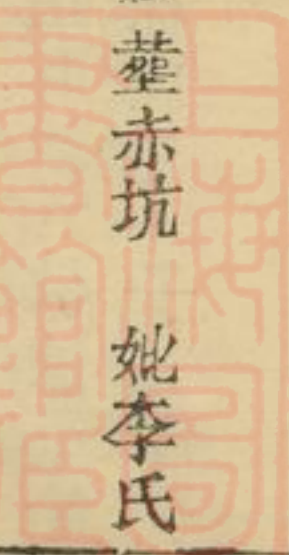 塟赤坑　妣李氏